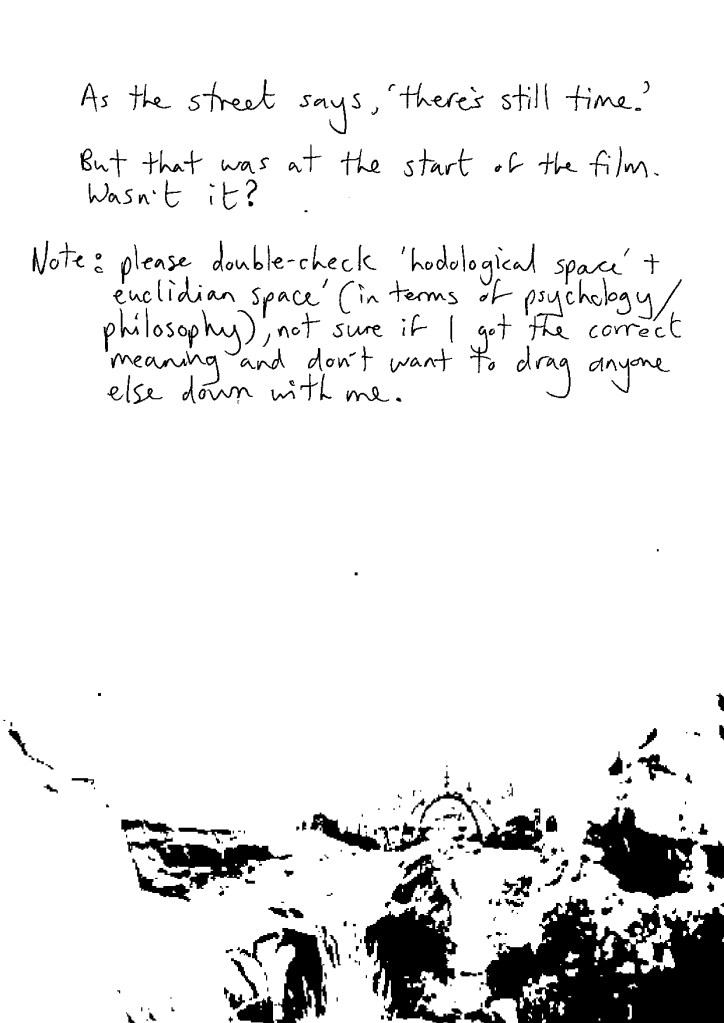 As the street says, 'there's still time.'
But that was at the start of the film.
Wasn't it?
Note: please double-check 'hodological space' +
euclidian space' (in terms of psychology/
philosophy), not sure if I got the correct
meaning and don't want to drag anyone
else down with me.